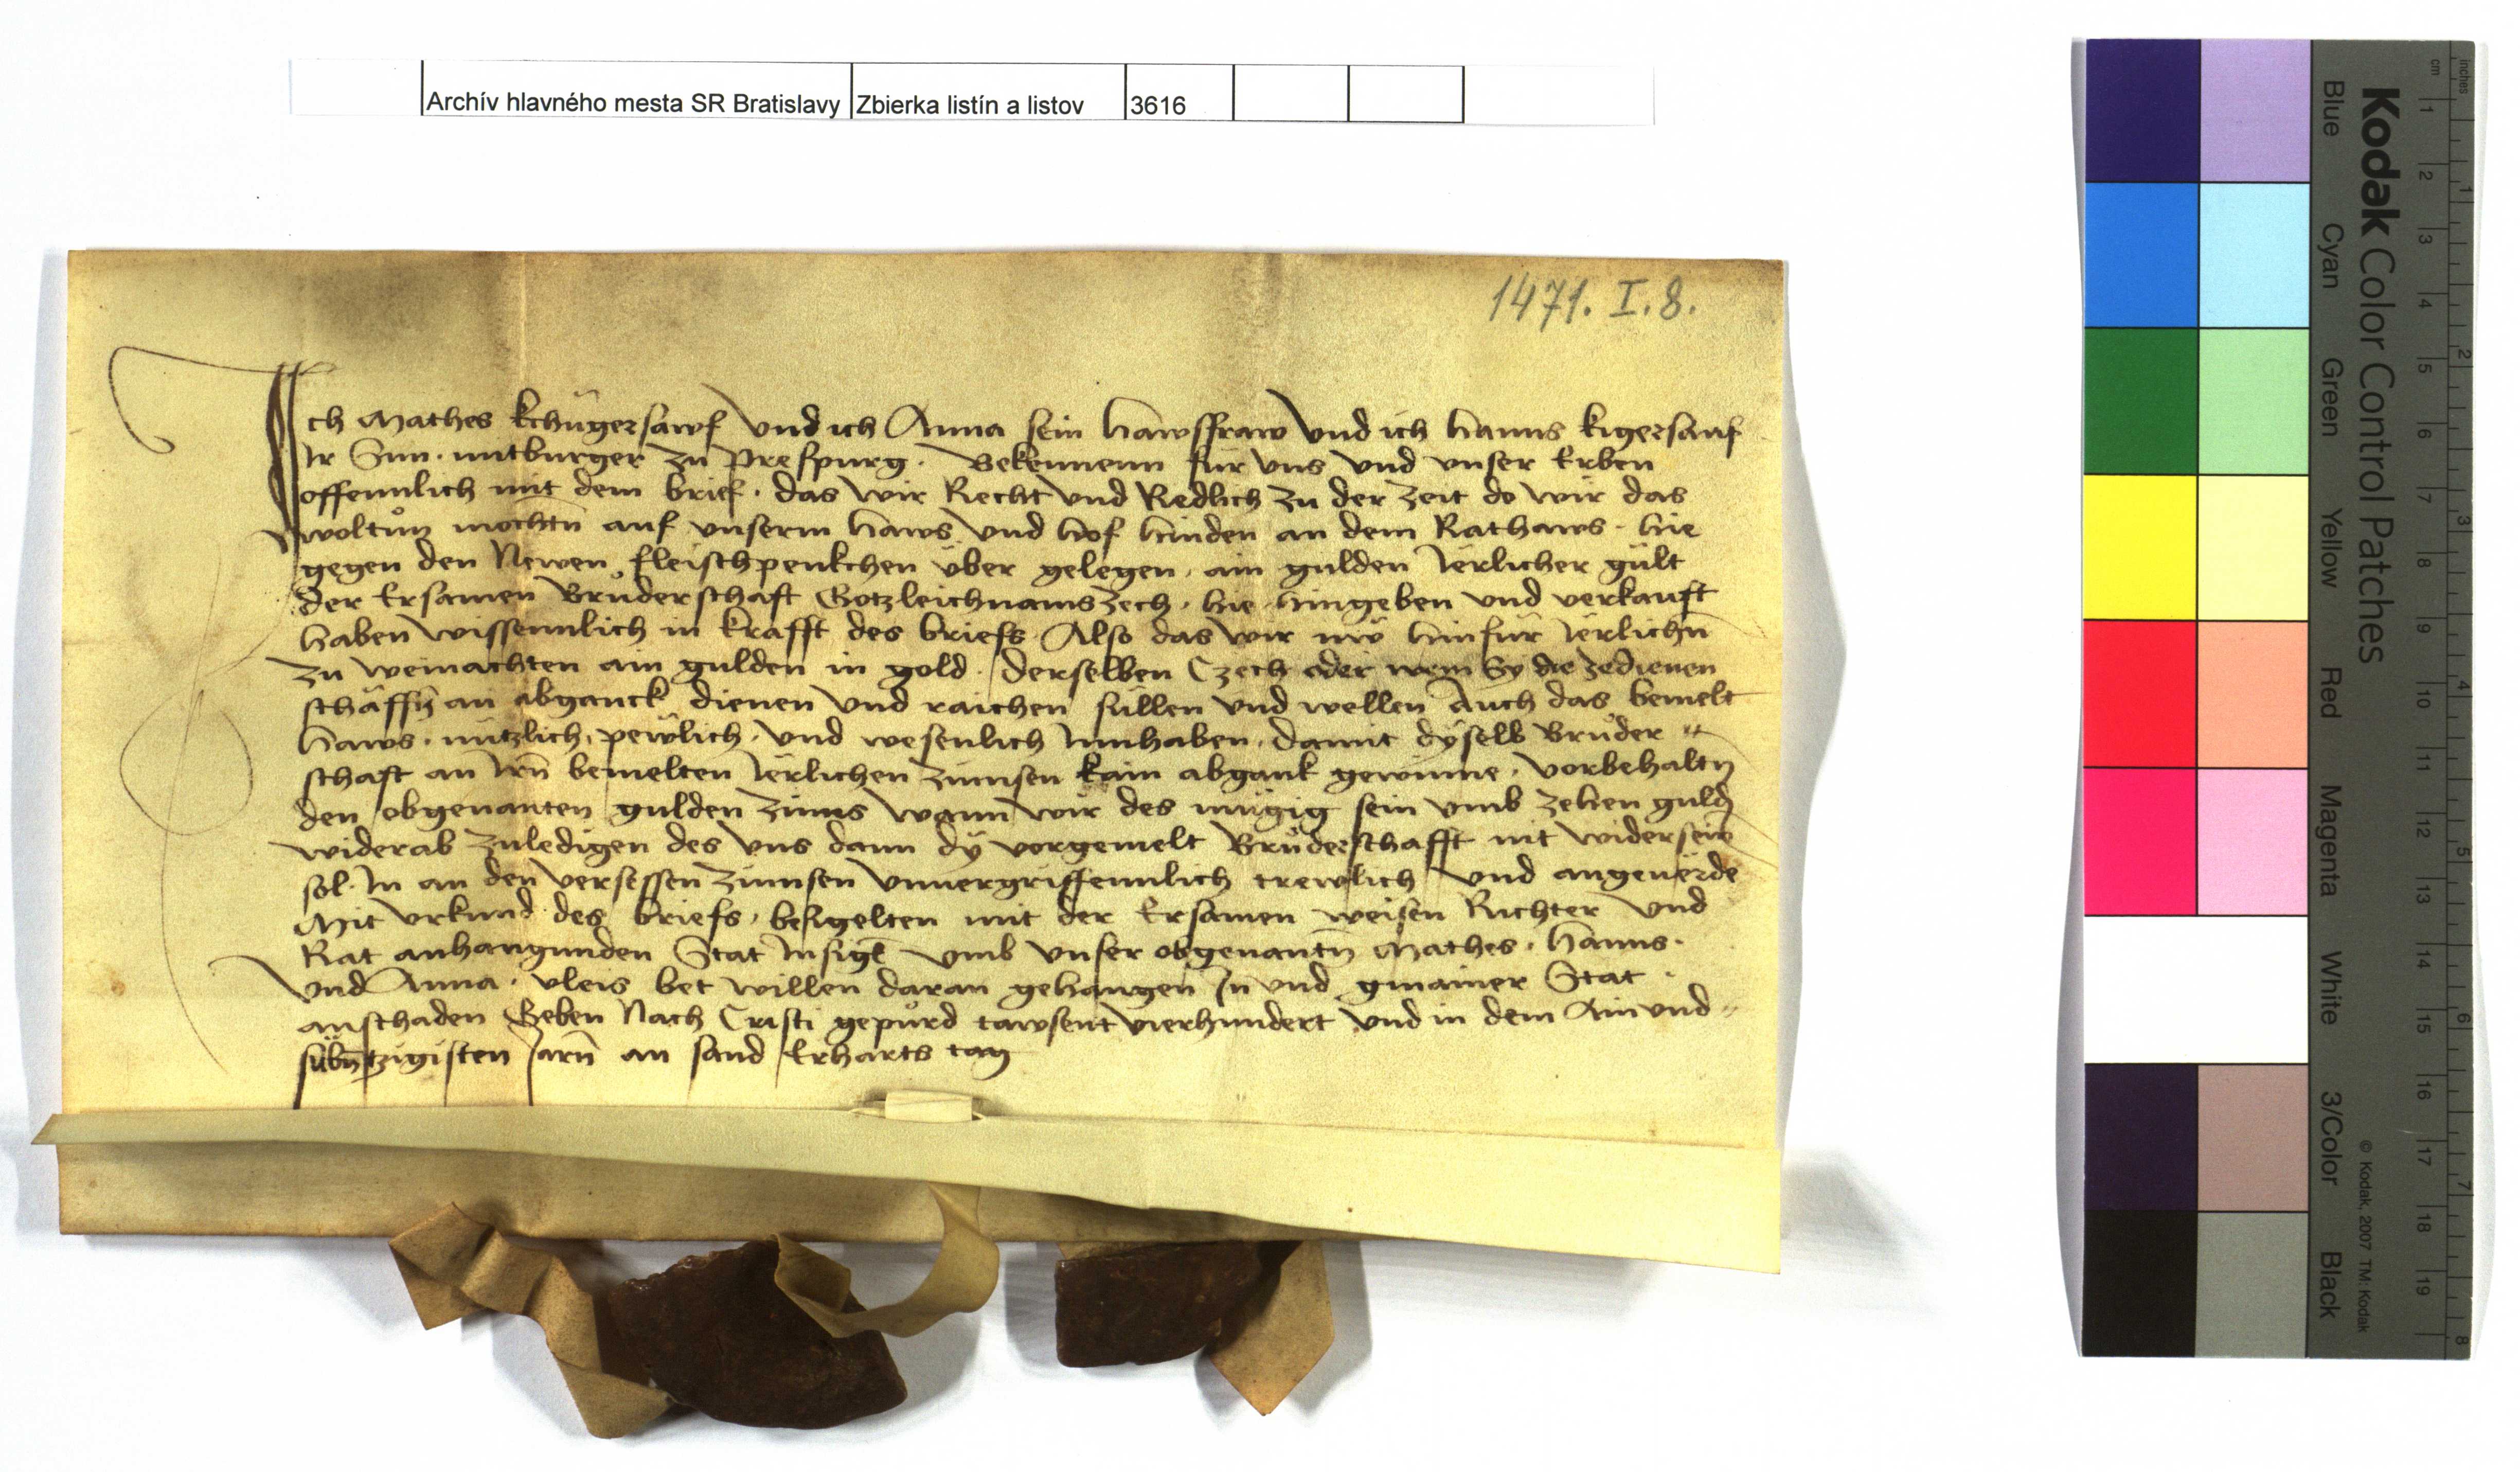 Archív hlavného mesta SR Bratislavy Zbierka listín a listov 3616
1471. I. 8.
Ich Mathes kchügersawf Vnd ich Anna sein hawsfraw Vnd ich hanns kigersauf
Ir Sun. mitburger zu Prespurg. Bekennenn für vns vnd vnser Erben
offennlich mit dem brief. das Wir Recht Vnd Redlich zu der zeit do Wir das
mochtn̄ auf vnserm haws Vnd hof hinden an dem Rathaws. hie
gegen den Newen fleischpenkchen über gelegen. ain gulden Ierlicher gült
der Ersamen Brůderschaft Gotzleichnamszech. hie hingeben vnd verkauft
haben Wissennlich in krafft des briefs. Also das Wir nw hinfür Ierlichn̄
zu weinachten ain gulden in gold. derselben Czech oder wem Sy die zedienen
schaffn̄ an abganck dienen Vnd raichen süllen vnd wellen Auch das bemelt
haws. nützlich. pewlich. Vnd wesenlich Innhaben. damit dyselb Brůder
schaft an Irn̄ bemelten Ierlichen zinnsen kain abgank gewinne. Vorbehaltn̄
den obgenanten gulden zinns Wann Wir des mügig sein vmb zehen guld̄
widerab zuledigen des vns dann dy vorgemelt Brůderschafft nit widersein
sol. In an den Versessen zinnsen Vnuergriffennlich trewlich Vnd angeuerde
Mit Vrkund des briefs. besigelten mit der Ersamen weisen Richter Vnd
Rat anhangunden Stat Insigl̄ Vmb Vnser obgenantn̄ Mathes. hanns.
Vnd Anna. vleis bet willen daran gehangen In vnd gmainer Stat
anschaden Geben Nach Cristi gepůrd tawsent Vierhundert Vnd in dem Ainvnd
sübn̄tzigisten Iarn̄ an sand Erharts tag
Kodak Color Control Patches
© Kodak, 2007 TM: Kodak
Blue Cyan Green Yellow Red Magenta White 3/Color Black
cm 1 2 3 4 5 6 7 8 9 10 11 12 13 14 15 16 17 18 19
inches 1 2 3 4 5 6 7 8